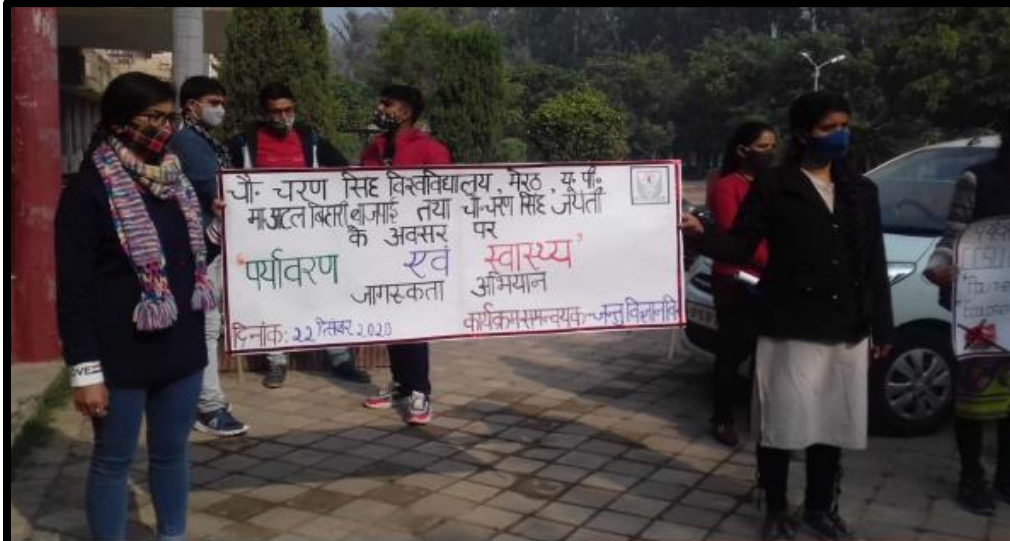 चौ० चरण सिंह विश्वविद्यालय, मेरठ, यू. पी.
मा. अटल बिहारी बाजपाई तथा चौ. चरण सिंह जयंती
के अवसर पर
"पर्यावरण एवं स्वास्थ्य"
जागरूकता अभियान
दिनांक: 22 दिसंबर 2020
कार्यक्रम समन्वयक- जन्तु विज्ञान वि